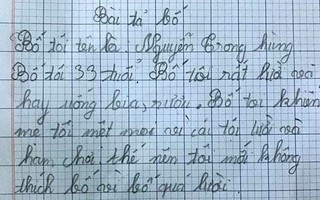 Bài tả bố
Bố tôi tên là. Nguyễn Trong hùng
Bố tôi 33 tuổi. Bố tôi rất lười mà
hay uống bia, rượu. Bố tôi khiến
mẹ tôi mệt mọi vì cái tội lười mà
ham chơi, thế nên tôi mới không
thích bố vì bố quá lười.